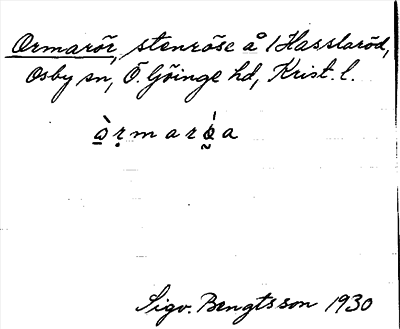 Ormarör, stenröse å /Hasslaröd,
Osby sn, Ö. Göinge hd, Krist. l.
Sigv. Bengtsson 1930